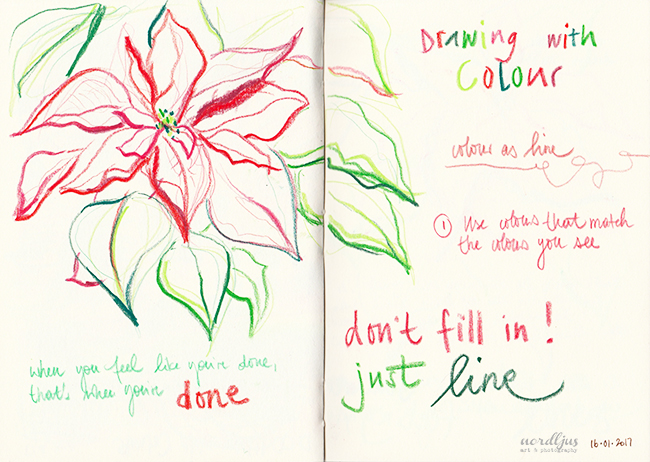 when you feel like you're done,
that's when you're done
Drawing with
Colour
colour as line
① Use colours that match
the colours you see
don't fill in!
just line
nordljus
art & photography
16.01.2017